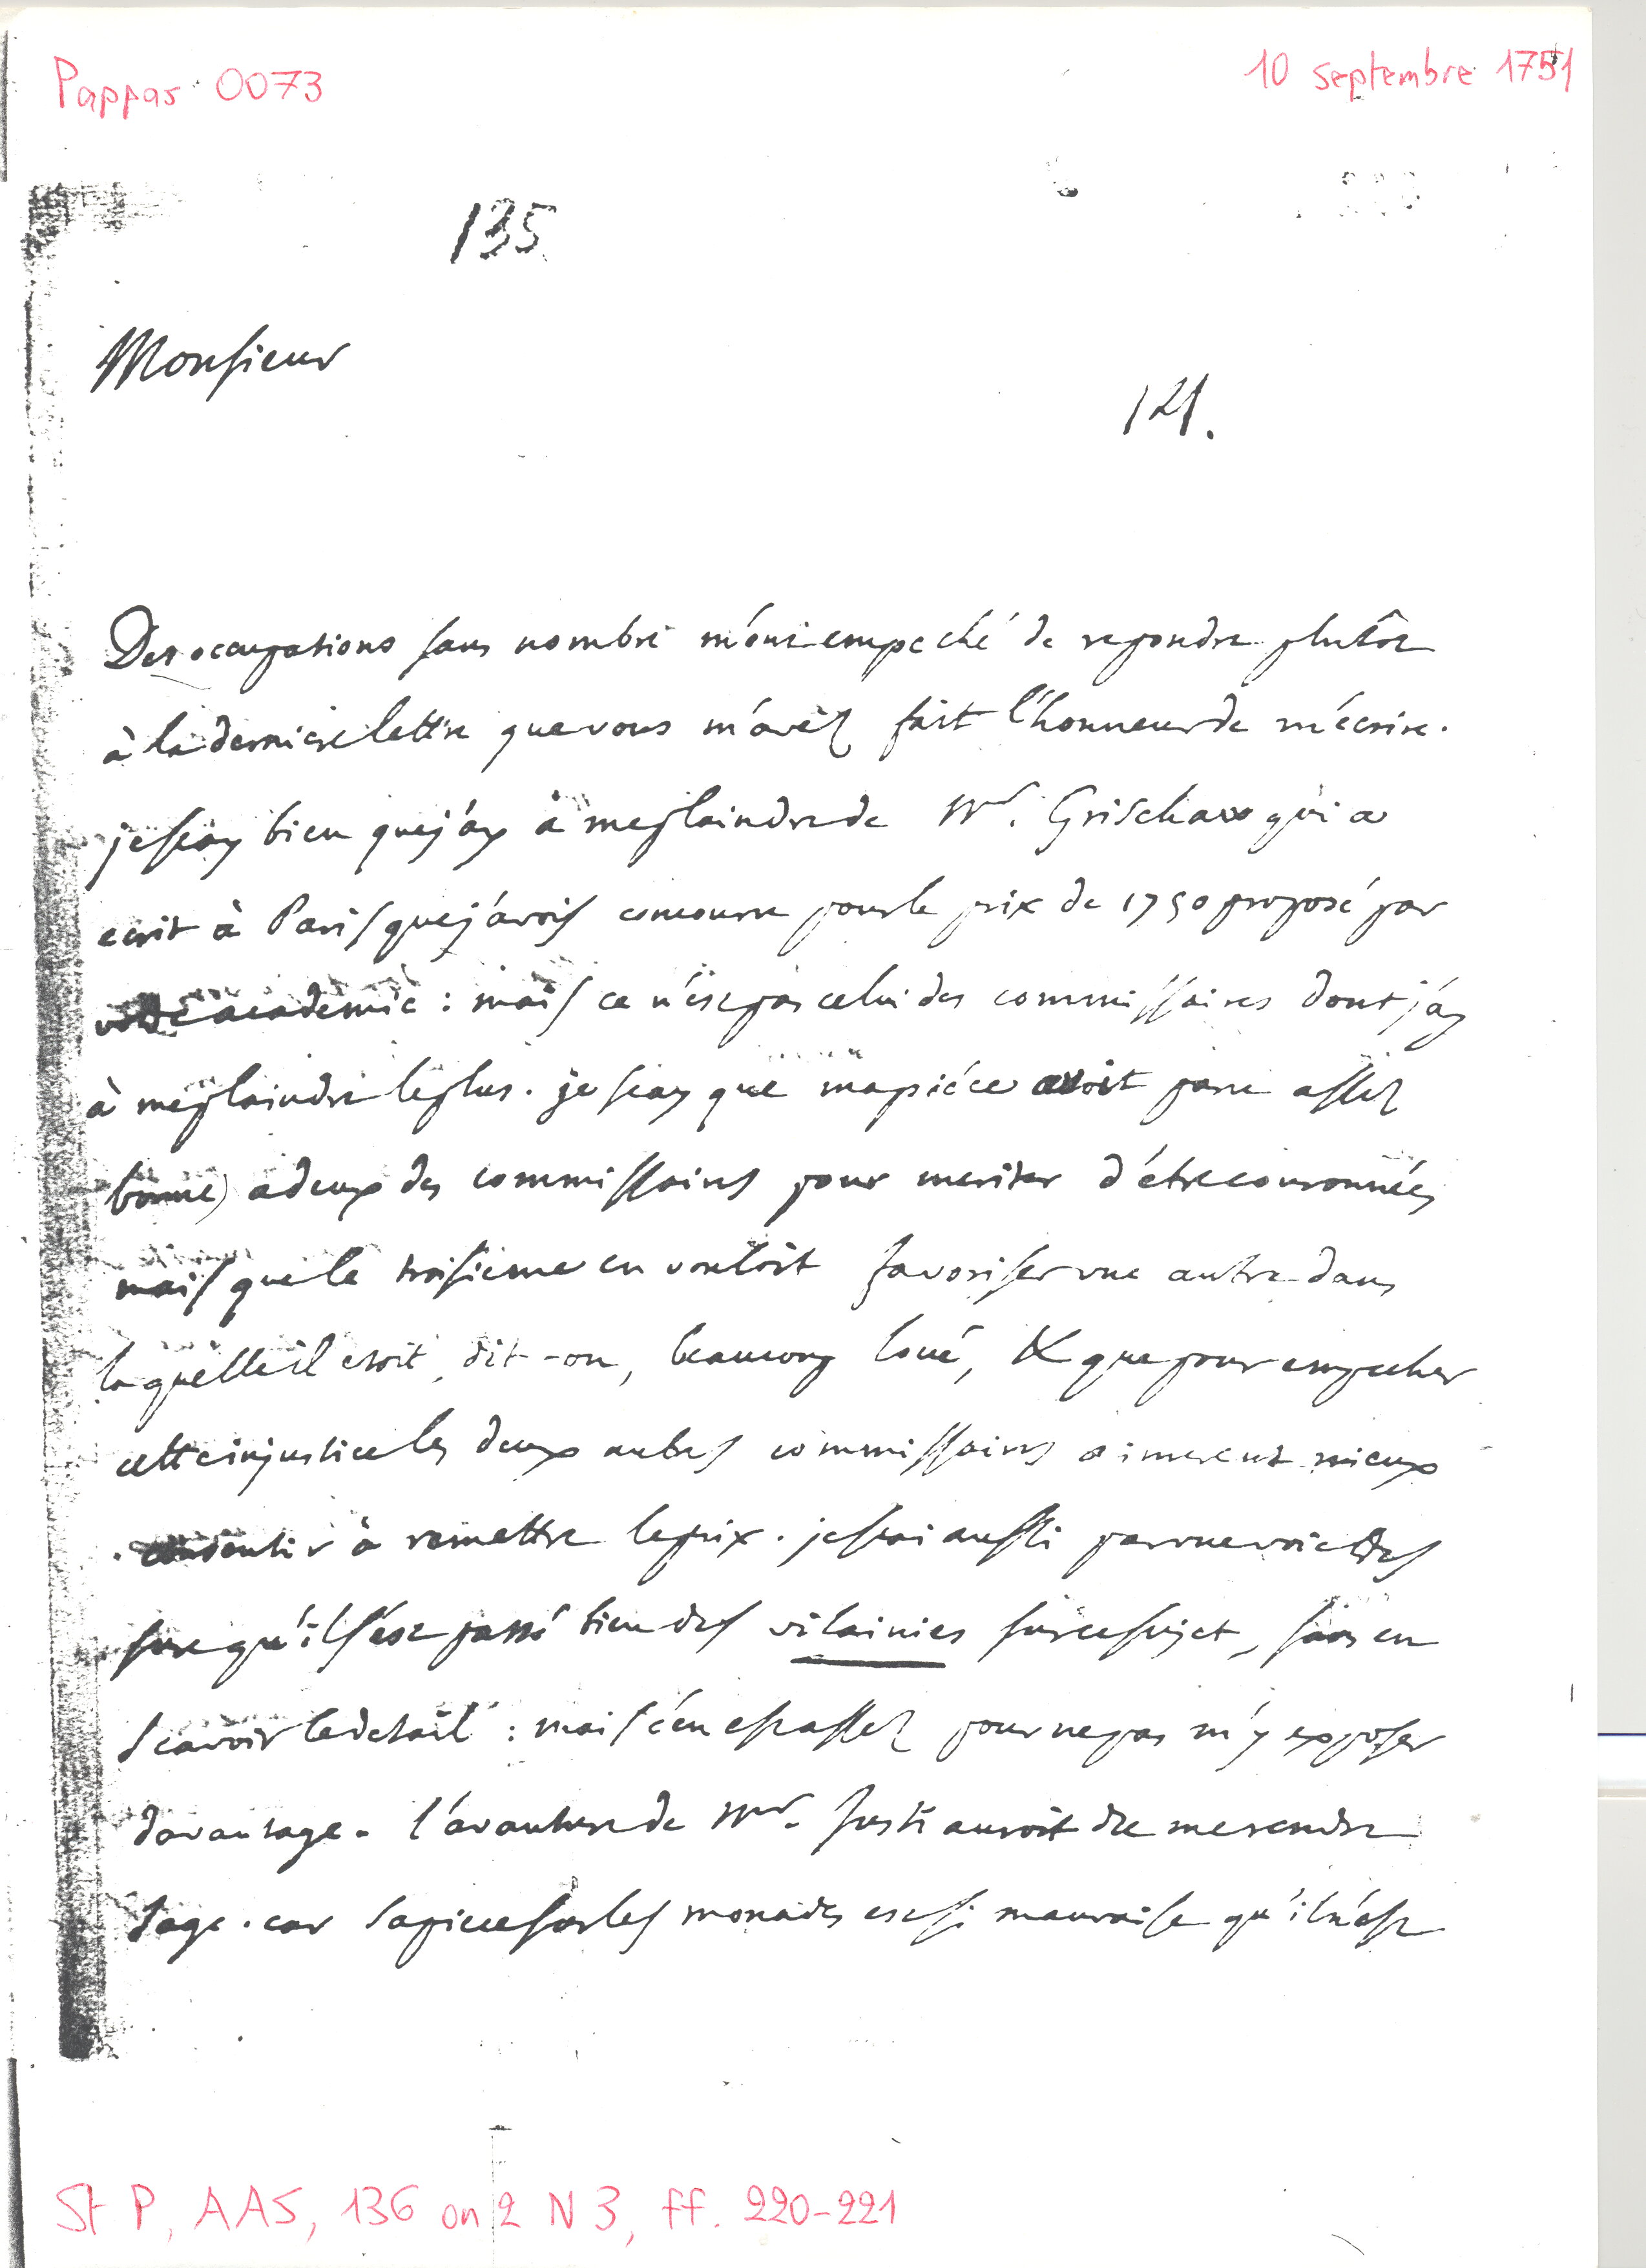 Pappas 0073
10 septembre 1751
135
Monsieur
121.
Des occupations sans nombre m'ont empeché de repondre plutôt
à la derniere lettre que vous m'avèz fait l'honneur de m'écrire.
je sçay bien que j'ay à me plaindre de Mr. Grischow qui a
ecrit à Paris que j'avois concouru pour le prix de 1750 proposé par
votre academie : mais ce n'est pas celui des commissaires dont j'ay
à me plaindre le plus. je sçay que ma piéce avoit paru assez
bonne a deux des commissaires pour meriter d'être couronnée,
mais que le troisieme en vouloit favoriser une autre dans
laquelle il etoit, dit-on, beaucoup loué, & que pour empecher
cette injustice les deux autres commissaires aimerent mieux
consentir à remettre le prix. je sçai aussi par une voie très
sure qu'il s'est passé bien des vilainies sur ce sujet, sans en
scavoir le detail : mais c'en est assez pour ne pas m'y exposer
davantage. l'avanture de Mr. Justi auroit du me rendre
sage. car sa piece sur les monades est si mauvaise qu'il n'est
St P, AAS, 136 on 2 N 3, ff. 220-221